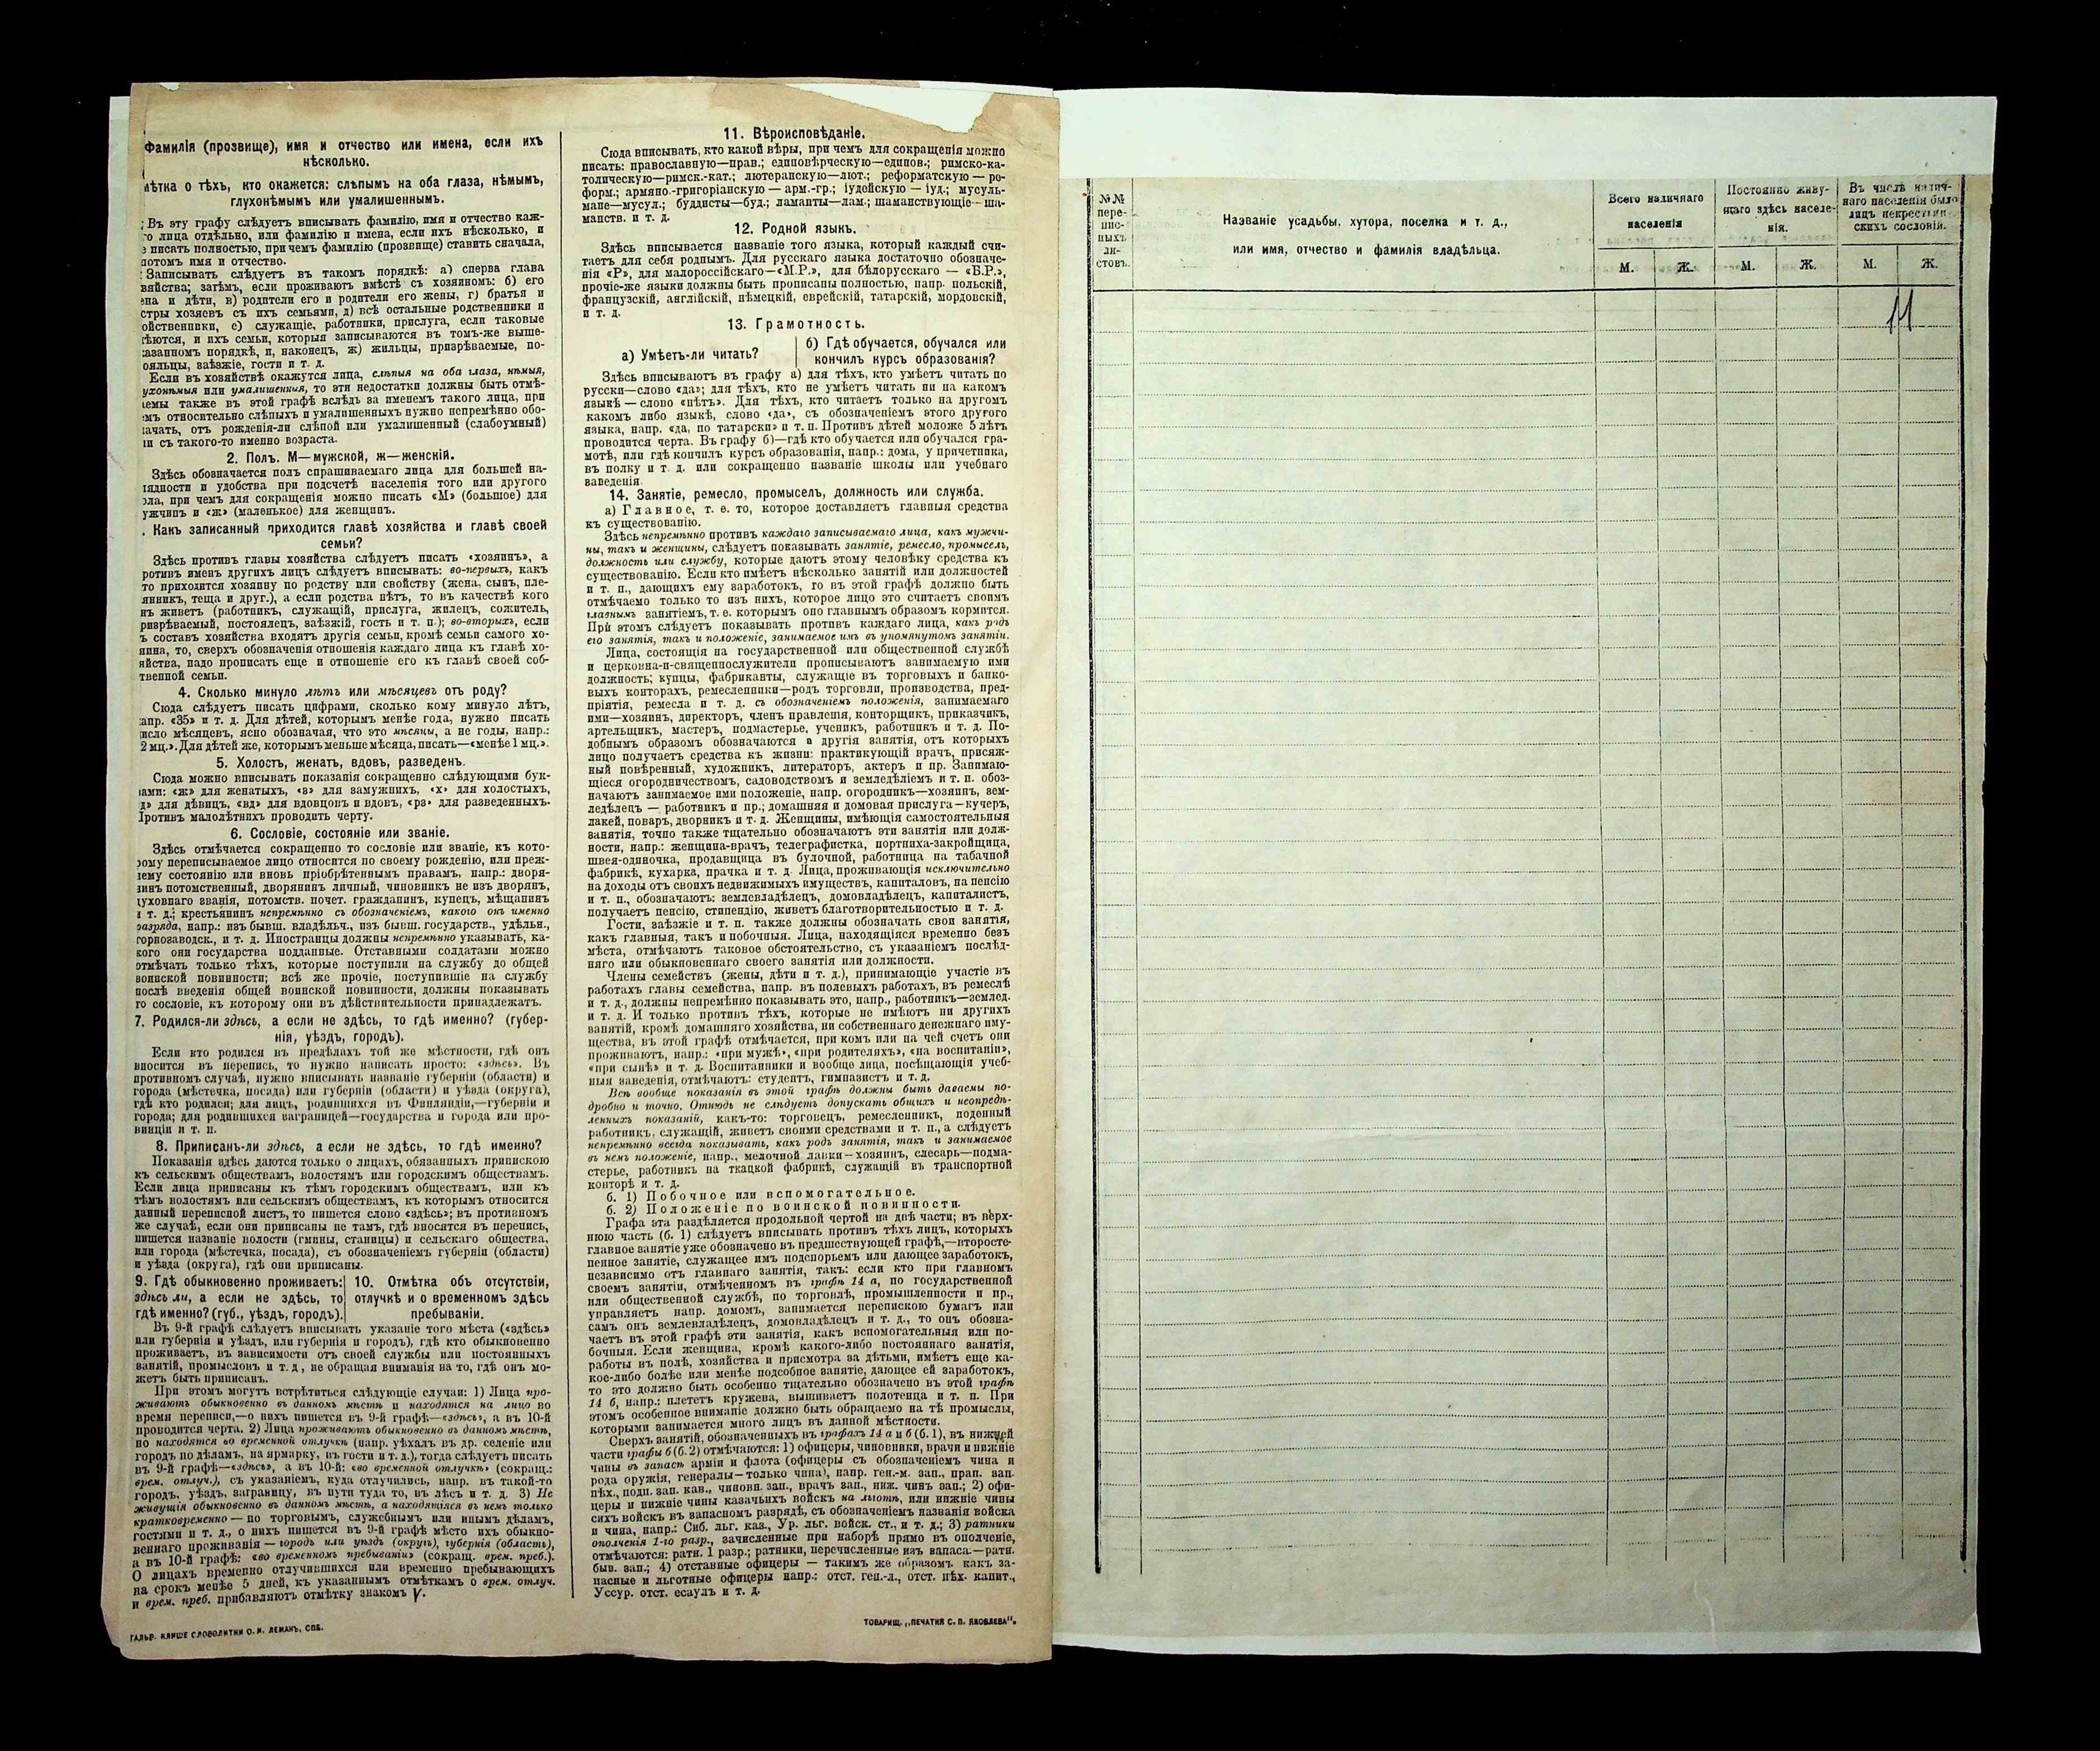 Фамилія (прозвище), имя и отчество или имена, если ихъ
нѣсколько.
мѣтка о тѣхъ, кто окажется: слѣпымъ на оба глаза, нѣмымъ,
глухонѣмымъ или умалишеннымъ.
Въ эту графу слѣдуетъ вписывать фамилію, имя и отчество каж-
го лица отдѣльно, или фамилію и имена, если ихъ нѣсколько, и
писать полностью, при чемъ фамилію (прозвище) ставить сначала,
потомъ имя и отчество.
Записывать слѣдуетъ въ такомъ порядкѣ: а) сперва глава
зяйства; затѣмъ, если проживаютъ вмѣстѣ съ хозяиномъ: б) его
ена и дѣти, в) родители его и родители его жены, г) братья и
стры хозяевъ съ ихъ семьями, д) всѣ остальные родственники и
ойственники, е) служащіе, работники, прислуга, если таковые
ѣются, и ихъ семьи, которыя записываются въ томъ-же выше-
казанномъ порядкѣ, и, наконецъ, ж) жильцы, призрѣваемые, по-
ояльцы, заѣзжіе, гости и т. д.
Если въ хозяйствѣ окажутся лица, слѣпыя на оба глаза, нѣмыя,
ухонѣмыя или умалишенныя, то эти недостатки должны быть отмѣ-
чемы также въ этой графѣ вслѣдъ за именемъ такого лица, при
емъ относительно слѣпыхъ и умалишенныхъ нужно непремѣнно обо-
ачать, отъ рожденія-ли слѣпой или умалишенный (слабоумный)
и съ такого-то именно возраста.
2. Полъ. М—мужской, ж—женскій.
Здѣсь обозначается полъ спрашиваемаго лица для большей на-
ядности и удобства при подсчетѣ населенія того или другого
ола, при чемъ для сокращенія можно писать «М» (большое) для
ужчинъ и «ж» (маленькое) для женщинъ.
. Какъ записанный приходится главѣ хозяйства и главѣ своей
семьи?
Здѣсь противъ главы хозяйства слѣдуетъ писать «хозяинъ», а
ротивъ именъ другихъ лицъ слѣдуетъ вписывать: во-первыхъ, какъ
то приходится хозяину по родству или свойству (жена, сынъ, пле-
янникъ, теща и друг.), а если родства нѣтъ, то въ качествѣ кого
нъ живетъ (работникъ, служащій, прислуга, жилецъ, сожитель,
ризрѣваемый, постоялецъ, заѣзжій, гость и т. п.); во-вторыхъ, если
ъ составъ хозяйства входятъ другія семьи, кромѣ семьи самого хо-
яина, то, сверхъ обозначенія отношенія каждаго лица къ главѣ хо-
яйства, надо прописать еще и отношеніе его къ главѣ своей соб-
твенной семьи.
4. Сколько минуло лѣтъ или мѣсяцевъ отъ роду?
Сюда слѣдуетъ писать цифрами, сколько кому минуло лѣтъ,
апр. «35» и т. д. Для дѣтей, которымъ менѣе года, нужно писать
исло мѣсяцевъ, ясно обозначая, что это мѣсяцы, а не годы, напр.:
2 мц.». Для дѣтей же, которымъ меньше мѣсяца, писать—«менѣе 1 мц.».
5. Холостъ, женатъ, вдовъ, разведенъ.
Сюда можно вписывать показанія сокращенно слѣдующими бук-
вами: «ж» для женатыхъ, «з» для замужнихъ, «х» для холостыхъ,
д» для дѣвицъ, «вд» для вдовцовъ и вдовъ, «рз» для разведенныхъ.
Противъ малолѣтнихъ проводить черту.
6. Сословіе, состояніе или званіе.
Здѣсь отмѣчается сокращенно то сословіе или званіе, къ кото-
рому переписываемое лицо относится по своему рожденію, или преж-
нему состоянію или вновь пріобрѣтеннымъ правамъ, напр.: дворя-
нинъ потомственный, дворянинъ личный, чиновникъ не изъ дворянъ,
духовнаго званія, потомств. почет. гражданинъ, купецъ, мѣщанинъ
и т. д.; крестьянинъ непремѣнно съ обозначеніемъ, какого онъ именно
разряда, напр.: изъ бывш. владѣльч., изъ бывш. государств., удѣльн.,
горнозаводск., и т. д. Иностранцы должны непремѣнно указывать, ка-
кого они государства подданные. Отставными солдатами можно
отмѣчать только тѣхъ, которые поступили на службу до общей
воинской повинности; всѣ же прочіе, поступившіе на службу
послѣ введенія общей воинской повинности, должны показывать
то сословіе, къ которому они въ дѣйствительности принадлежатъ.
7. Родился-ли здѣсь, а если не здѣсь, то гдѣ именно? (губер-
нія, уѣздъ, городъ).
Если кто родился въ предѣлахъ той же мѣстности, гдѣ онъ
вносится въ перепись, то нужно написать просто: «здѣсь». Въ
противномъ случаѣ, нужно вписывать названіе губерніи (области) и
города (мѣстечка, посада) или губерніи (области) и уѣзда (округа),
гдѣ кто родился; для лицъ, родившихся въ Финляндіи,—губерніи и
города; для родившихся заграницей—государства и города или про-
винціи и т. п.
8. Приписанъ-ли здѣсь, а если не здѣсь, то гдѣ именно?
Показанія здѣсь даются только о лицахъ, обязанныхъ припискою
къ сельскимъ обществамъ, волостямъ или городскимъ обществамъ.
Если лица приписаны къ тѣмъ городскимъ обществамъ, или къ
тѣмъ волостямъ или сельскимъ обществамъ, къ которымъ относится
данный переписной листъ, то пишется слово «здѣсь»; въ противномъ
же случаѣ, если они приписаны не тамъ, гдѣ вносятся въ перепись,
пишется названіе волости (гмины, станицы) и сельскаго общества,
или города (мѣстечка, посада), съ обозначеніемъ губерніи (области)
и уѣзда (округа), гдѣ они приписаны.
9. Гдѣ обыкновенно проживаетъ:
здѣсь ли, а если не здѣсь, то
гдѣ именно? (губ., уѣздъ, городъ).
10. Отмѣтка объ отсутствіи,
отлучкѣ и о временномъ здѣсь
пребываніи.
Въ 9-й графѣ слѣдуетъ вписывать указаніе того мѣста («здѣсь»
или губернія и уѣздъ, или губернія и городъ), гдѣ кто обыкновенно
проживаетъ, въ зависимости отъ своей службы или постоянныхъ
занятій, промысловъ и т. д., не обращая вниманія на то, гдѣ онъ мо-
жетъ быть приписанъ.
При этомъ могутъ встрѣтиться слѣдующіе случаи: 1) Лица про-
живаютъ обыкновенно въ данномъ мѣстѣ и находятся на лицо во
время переписи,—о нихъ пишется въ 9-й графѣ—«здѣсь», а въ 10-й
проводится черта. 2) Лица проживаютъ обыкновенно въ данномъ мѣстѣ,
но находятся во временной отлучкѣ (напр. уѣхалъ въ др. селеніе или
городъ по дѣламъ, на ярмарку, въ гости и т. д.), тогда слѣдуетъ писать
въ 9-й графѣ—«здѣсь», а въ 10-й: «во временной отлучкѣ» (сокращ.:
врем. отлуч.), съ указаніемъ, куда отлучились, напр. въ такой-то
городъ, уѣздъ, заграницу, въ пути туда то, въ лѣсъ и т. д. 3) Не
живущія обыкновенно въ данномъ мѣстѣ, а находящіяся въ немъ только
кратковременно — по торговымъ, служебнымъ или инымъ дѣламъ,
гостями и т. д., о нихъ пишется въ 9-й графѣ мѣсто ихъ обыкно-
веннаго проживанія — городъ или уѣздъ (округъ), губернія (область),
а въ 10-й графѣ: «во временномъ пребываніи» (сокращ. врем. преб.).
О лицахъ временно отлучившихся или временно пребывающихъ
на срокъ менѣе 5 дней, къ указаннымъ отмѣткамъ о врем. отлуч.
и врем. преб. прибавляютъ отмѣтку знакомъ V.
ГАЛЬВ. КЛИШЕ СЛОВОЛИТНИ О. И. ЛЕМАНЪ, СПБ.
11. Вѣроисповѣданіе.
Сюда вписывать, кто какой вѣры, при чемъ для сокращенія можно
писать: православную—прав.; единовѣрческую—единов.; римско-ка-
толическую—римск.-кат.; лютеранскую—лют.; реформатскую — ре-
форм.; армяно-григоріанскую — арм.-гр.; іудейскую — іуд.; мусуль-
мане—мусул.; буддисты—буд.; ламаиты—лам.; шаманствующіе—ша-
манств. и т. д.
12. Родной языкъ.
Здѣсь вписывается названіе того языка, который каждый счи-
таетъ для себя роднымъ. Для русскаго языка достаточно обозначе-
нія «Р», для малороссійскаго—«М.Р.», для бѣлорусскаго — «Б.Р.»,
прочіе-же языки должны быть прописаны полностью, напр. польскій,
французскій, англійскій, нѣмецкій, еврейскій, татарскій, мордовскій,
и т. д.
13. Грамотность.
а) Умѣетъ-ли читать?
б) Гдѣ обучается, обучался или
кончилъ курсъ образованія?
Здѣсь вписываютъ въ графу а) для тѣхъ, кто умѣетъ читать по
русски—слово «да»; для тѣхъ, кто не умѣетъ читать ни на какомъ
языкѣ — слово «нѣтъ». Для тѣхъ, кто читаетъ только на другомъ
какомъ либо языкѣ, слово «да», съ обозначеніемъ этого другого
языка, напр. «да, по татарски» и т. п. Противъ дѣтей моложе 5 лѣтъ
проводится черта. Въ графу б)—гдѣ кто обучается или обучался гра-
мотѣ, или гдѣ кончилъ курсъ образованія, напр.: дома, у причетника,
въ полку и т. д. или сокращенно названіе школы или учебнаго
заведенія.
14. Занятіе, ремесло, промыселъ, должность или служба.
а) Главное, т. е. то, которое доставляетъ главныя средства
къ существованію.
Здѣсь непремѣнно противъ каждаго записываемаго лица, какъ мужчи-
ны, такъ и женщины, слѣдуетъ показывать занятіе, ремесло, промыселъ,
должность или службу, которые даютъ этому человѣку средства къ
существованію. Если кто имѣетъ нѣсколько занятій или должностей
и т. п., дающихъ ему заработокъ, то въ этой графѣ должно быть
отмѣчаемо только то изъ нихъ, которое лицо это считаетъ своимъ
главнымъ занятіемъ, т. е. которымъ оно главнымъ образомъ кормится.
При этомъ слѣдуетъ показывать противъ каждаго лица, какъ родъ
его занятія, такъ и положеніе, занимаемое имъ въ упомянутомъ занятіи.
Лица, состоящія на государственной или общественной службѣ
и церковно-и-священнослужители прописываютъ занимаемую ими
должность; купцы, фабриканты, служащіе въ торговыхъ и банко-
выхъ конторахъ, ремесленники—родъ торговли, производства, пред-
пріятія, ремесла и т. д. съ обозначеніемъ положенія, занимаемаго
ими—хозяинъ, директоръ, членъ правленія, конторщикъ, приказчикъ,
артельщикъ, мастеръ, подмастерье, ученикъ, работникъ и т. д. По-
добнымъ образомъ обозначаются и другія занятія, отъ которыхъ
лицо получаетъ средства къ жизни: практикующій врачъ, присяж-
ный повѣренный, художникъ, литераторъ, актеръ и пр. Занимаю-
щіеся огородничествомъ, садоводствомъ и земледѣліемъ и т. п. обоз-
начаютъ занимаемое ими положеніе, напр. огородникъ—хозяинъ, зем-
ледѣлецъ — работникъ и пр.; домашняя и домовая прислуга—кучеръ,
лакей, поваръ, дворникъ и т. д. Женщины, имѣющія самостоятельныя
занятія, точно также тщательно обозначаютъ эти занятія или долж-
ности, напр.: женщина-врачъ, телеграфистка, портниха-закройщица,
швея-одиночка, продавщица въ булочной, работница на табачной
фабрикѣ, кухарка, прачка и т. д. Лица, проживающія исключительно
на доходы отъ своихъ недвижимыхъ имуществъ, капиталовъ, на пенсію
и т. п., обозначаютъ: землевладѣлецъ, домовладѣлецъ, капиталистъ,
получаетъ пенсію, стипендію, живетъ благотворительностью и т. д.
Гости, заѣзжіе и т. п. также должны обозначать свои занятія,
какъ главныя, такъ и побочныя. Лица, находящіяся временно безъ
мѣста, отмѣчаютъ таковое обстоятельство, съ указаніемъ послѣд-
няго или обыкновеннаго своего занятія или должности.
Члены семействъ (жены, дѣти и т. д.), принимающіе участіе въ
работахъ главы семейства, напр. въ полевыхъ работахъ, въ ремеслѣ
и т. д., должны непремѣнно показывать это, напр., работникъ—землед.
и т. д. И только противъ тѣхъ, которые не имѣютъ ни другихъ
занятій, кромѣ домашняго хозяйства, ни собственнаго денежнаго иму-
щества, въ этой графѣ отмѣчается, при комъ или на чей счетъ они
проживаютъ, напр.: «при мужѣ», «при родителяхъ», «на воспитаніи»,
«при сынѣ» и т. д. Воспитанники и вообще лица, посѣщающія учеб-
ныя заведенія, отмѣчаютъ: студентъ, гимназистъ и т. д.
Всѣ вообще показанія въ этой графѣ должны быть даваемы по-
дробно и точно. Отнюдь не слѣдуетъ допускать общихъ и неопредѣ-
ленныхъ показаній, какъ-то: торговецъ, ремесленникъ, поденный
работникъ, служащій, живетъ своими средствами и т. п., а слѣдуетъ
непремѣнно всегда показывать, какъ родъ занятія, такъ и занимаемое
въ немъ положеніе, напр., мелочной лавки—хозяинъ, слесарь—подма-
стерье, работникъ на ткацкой фабрикѣ, служащій въ транспортной
конторѣ и т. д.
б. 1) Побочное или вспомогательное.
б. 2) Положеніе по воинской повинности.
Графа эта раздѣляется продольной чертой на двѣ части; въ верх-
нюю часть (б. 1) слѣдуетъ вписывать противъ тѣхъ лицъ, которыхъ
главное занятіе уже обозначено въ предшествующей графѣ,—второсте-
пенное занятіе, служащее имъ подспорьемъ или дающее заработокъ,
независимо отъ главнаго занятія, такъ: если кто при главномъ
своемъ занятіи, отмѣченномъ въ графѣ 14 а, по государственной
или общественной службѣ, по торговлѣ, промышленности и пр.,
управляетъ напр. домомъ, занимается перепискою бумагъ или
самъ онъ землевладѣлецъ, домовладѣлецъ и т. д., то онъ обозна-
чаетъ въ этой графѣ эти занятія, какъ вспомогательныя или по-
бочныя. Если женщина, кромѣ какого-либо постояннаго занятія,
работы въ полѣ, хозяйства и присмотра за дѣтьми, имѣетъ еще ка-
кое-либо болѣе или менѣе подсобное занятіе, дающее ей заработокъ,
то это должно быть особенно тщательно обозначено въ этой графѣ
14 б, напр.: плететъ кружева, вышиваетъ полотенца и т. п. При
этомъ особенное вниманіе должно быть обращаемо на тѣ промыслы,
которыми занимается много лицъ въ данной мѣстности.
Сверхъ занятій, обозначенныхъ въ графахъ 14 а и б (б. 1), въ нижней
части графы б (б. 2) отмѣчаются: 1) офицеры, чиновники, врачи и нижніе
чины въ запасѣ арміи и флота (офицеры съ обозначеніемъ чина и
рода оружія, генералы—только чина), напр. ген.-м. зап., прап. зап.
пѣх., подп. зап. кав., чиновн. зап., врачъ зап., ниж. чинъ зап.; 2) офи-
церы и нижніе чины казачьихъ войскъ на льготѣ, или нижніе чины
сихъ войскъ въ запасномъ разрядѣ, съ обозначеніемъ названія войска
и чина, напр.: Сиб. льг. каз., Ур. льг. войск. ст., и т. д.; 3) ратники
ополченія 1-го разр., зачисленные при наборѣ прямо въ ополченіе,
отмѣчаются: ратн. 1 разр.; ратники, перечисленные изъ запаса:—ратн.
быв. зап.; 4) отставные офицеры — такимъ же образомъ какъ за-
пасные и льготные офицеры напр.: отст. ген.-л., отст. пѣх. капит.,
Уссур. отст. есаулъ и т. д.
ТОВАРИЩ. „ПЕЧАТНЯ С. П. ЯКОВЛЕВА".
№№
пере-
пис-
ныхъ
ли-
стовъ.
Названіе усадьбы, хутора, поселка и т. д.,
или имя, отчество и фамилія владѣльца.
Всего наличнаго
населенія
М.
Ж.
Постоянно живу-
щаго здѣсь населе-
нія.
М.
Ж.
Въ числѣ налич-
наго населенія было
лицъ некрестьян-
скихъ сословій.
М.
Ж.